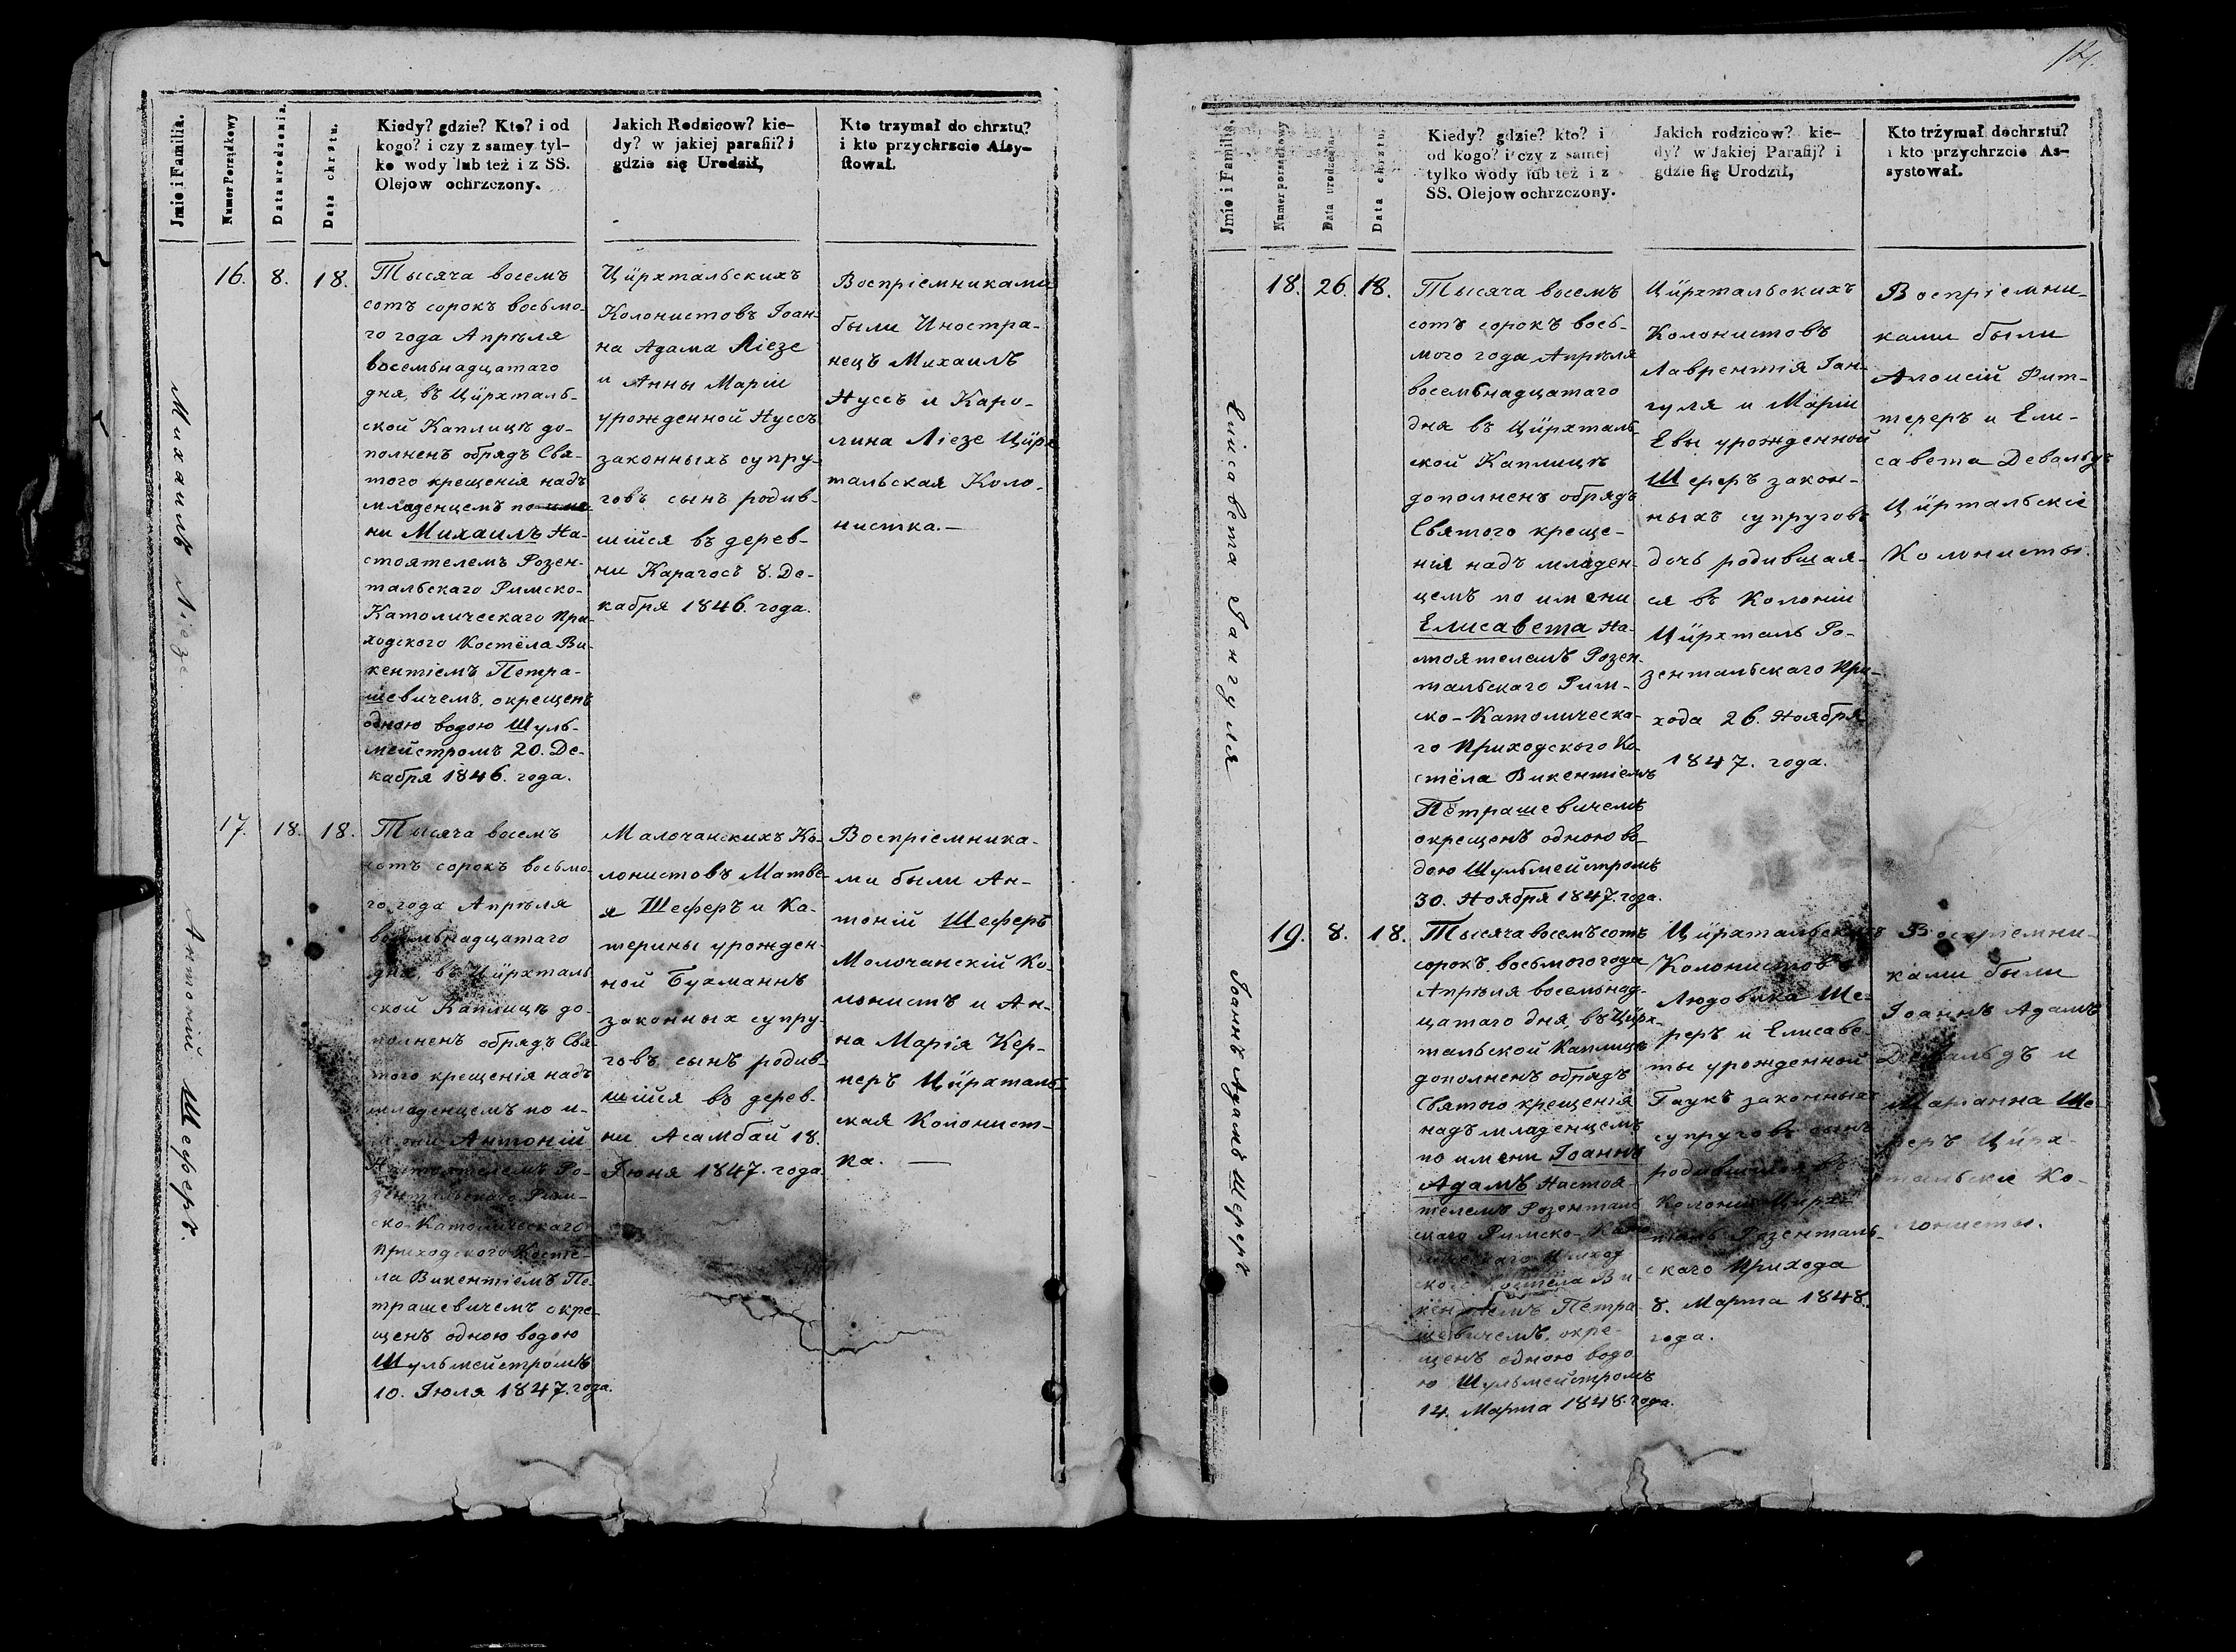 Jmie i Familia.
Numer Porządkowy
Data urodzenia.
Data chrztu.
Kiedy? gdzie? Kto? i od
kogo? i czy z samey tyl-
ko wody lub też i z SS.
Olejow ochrzczony.
Jakich Rodzicow? kie-
dy? w jakiej parafii? i
gdzie się Urodził,
Kto trzymał do chrztu?
i kto przychrzcie Assy-
stował.
Михаилъ Лiезе.
16.
8.
18.
Тысяча восемъ
сотъ сорокъ восьмо-
го года Апрѣля
восемьнадцатаго
дня, въ Цирхталь-
ской Каплицѣ до-
полненъ обрядъ Свя-
того крещенія надъ
младенцемъ по име-
ни Михаилъ На-
стоятелемъ Розен-
тальскаго Римско-
Католическаго При-
ходского Костёла Ви-
кентіемъ Петра-
шевичемъ, окрещенъ
одною водою Шуль-
мейстромъ 20. Де-
кабря 1846. года.
Цирхтальскихъ
Колонистовъ Іоан-
на Адама Лiезе
и Анны Маріи
урожденной Нуссъ
законныхъ супру-
говъ сынъ родив-
шійся въ дерев-
ни Карагосъ 8. Де-
кабря 1846. года.
Воспріемниками
были Иностра-
нецъ Михаилъ
Нуссъ и Каро-
лина Лiезе Цирх
тальская Коло-
нистка.—
Антоній Шеферъ.
17.
18.
18.
Тысяча восемъ
сотъ сорокъ восьмо-
го года Апрѣля
восемьнадцатаго
дня, въ Цирхталь
ской Каплицѣ до-
полненъ обрядъ Свя-
того крещенія надъ
младенцемъ по и-
мени Антоній
Настоятелемъ Ро-
зентальскаго Рим-
ско-Католическаго
Приходского Костё-
ла Викентіемъ Пе-
трашевичемъ окре-
щенъ одною водою
Шульмейстромъ
10. Іюля 1847. года.
Малочанскихъ Ко-
лонистовъ Матве-
я Шеферъ и Ка-
терины урожден-
ной Бухманнъ
законных супру-
говъ сынъ родив-
шійся въ дерев-
ни Асамбай 18.
Іюня 1847. года.
Воспріемника-
ми были Ан-
тоній Шеферъ
Молочанскій Ко-
лонистъ и Ан-
на Марія Кер-
перъ Цирхталь-
ская Колонист-
ка. —
121.
Jmie i Familia.
Numer porządkowy
Data urodzenia.
Data chrztu.
Kiedy? gdzie? kto? i
od kogo? i czy z samej
tylko wody lub też i z
SS. Olejow ochrzczony.
Jakich rodzicow? kie-
dy? w Jakiej Parafij? i
gdzie się Urodził,
Kto trzymał dochrztu?
i kto przychrzcie As-
systował.
Елисавета Гангуля
18.
26.
18.
Тысяча восемъ
сотъ сорокъ вось-
мого года Апрѣля
восемьнадцатаго
дня въ Цирхталь-
ской Каплицѣ
дополненъ обрядъ
Святого креще-
нія надъ младен-
цемъ по имени
Елисавета На-
стоятелемъ Розен-
тальскаго Рим-
ско-Католическа-
го Приходского Ко-
стёла Викентіемъ
Петрашевичемъ
окрещенъ одною во-
дою Шульмейстромъ
30. Ноября 1847. года.
Цирхтальскихъ
Колонистовъ
Лаврентія Ган-
гуля и Маріи
Евы урожденной
Шереръ закон-
ныхъ супруговъ
дочь родившая-
ся въ Колоніи
Цирхталь Ро-
зентальскаго При-
хода 26. Ноября
1847. года.
Воспріемни-
ками были
Алоисій Фит-
тереръ и Ели-
савета Девальдъ
Циртальскіе
Колонисты.
Іоаннъ Адамъ Шереръ.
19.
8.
18.
Тысяча восемъ сотъ
сорокъ восьмого года
Апрѣля восемьнад-
цатаго дня, въ Цирх-
тальской Каплицѣ
дополненъ обрядъ
Святого крещенія
надъ младенцемъ
по имени Іоаннъ
Адамъ Настоя-
телемъ Розенталь
скаго Римско-Като
лическаго Приход
ского Костёла Ви-
кентіемъ Петра-
шевичемъ, окре-
щенъ одною водо
ю Шульмейстромъ
14. Марта 1848. года.
Цирхтальскихъ
Колонистовъ
Людовика Ше-
реръ и Елисаве-
ты урожденной
Гаукъ законныхъ
супруговъ сынъ
родившійся въ
Колоніи Цирх-
таль Розенталь-
скаго Прихода
8. Марта 1848.
года.
Воспріемни-
ками были
Іоаннъ Адамъ
Девальдъ и
Маріанна Ше-
реръ Цирх-
тальскіе Ко-
лонисты.